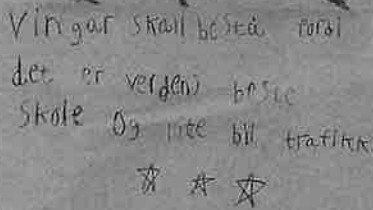 Vingar skall bestå fordi
det er verdens beste
skole og lite bil trafikk